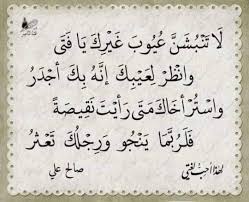 لَا تَنْبُشَنَّ عُيُوبَ غَيْرِكَ يَا فَتَى
وَانْظُرْ لِعَيْبِكَ إِنَّهُ بِكَ أَجْدَرُ
وَاسْتُرْ أَخَاكَ مَتَى رَأَيْتَ نَقِيصَةً
فَلَرُبَّمَا يَنْجُو وَرِجْلُكَ تَعْثُرُ
صالح علي
لهذا أحببت لغتي